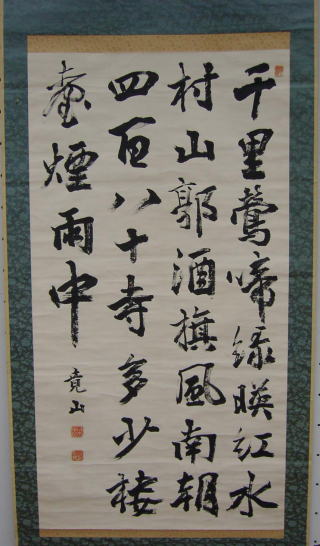 千里鶯啼緑暎紅水
村山郭酒旗風南朝
四百八十寺多少楼
臺煙雨中
竟山